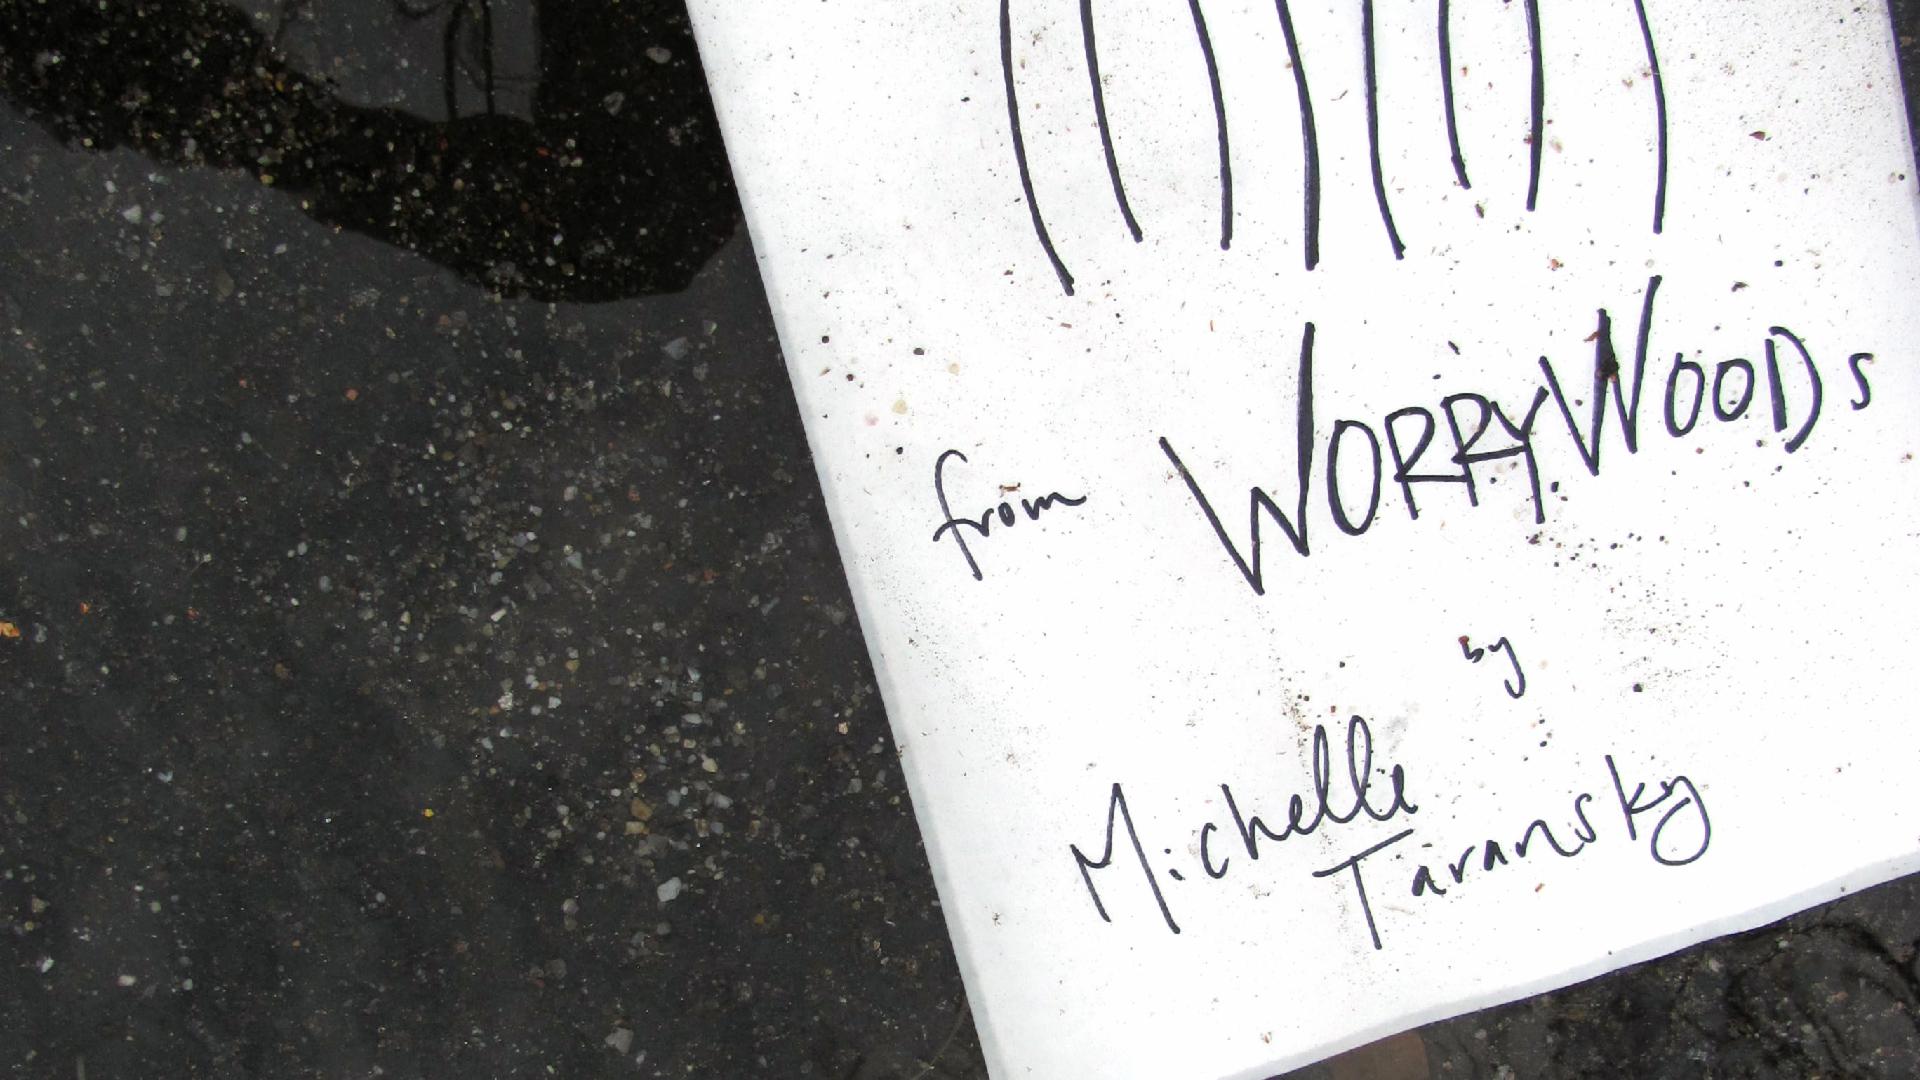 from WORRY WOODs
by
Michelle
Taransky